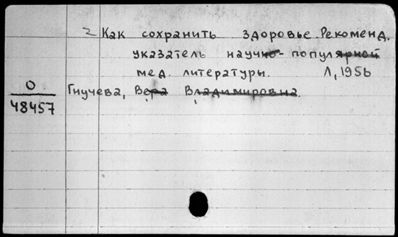 Как сохранить здоровье. Рекоменд.
указатель научно-популярной
мед. литературы. Л, 1956
О
48457
Гнучева, Вера Владимировна.